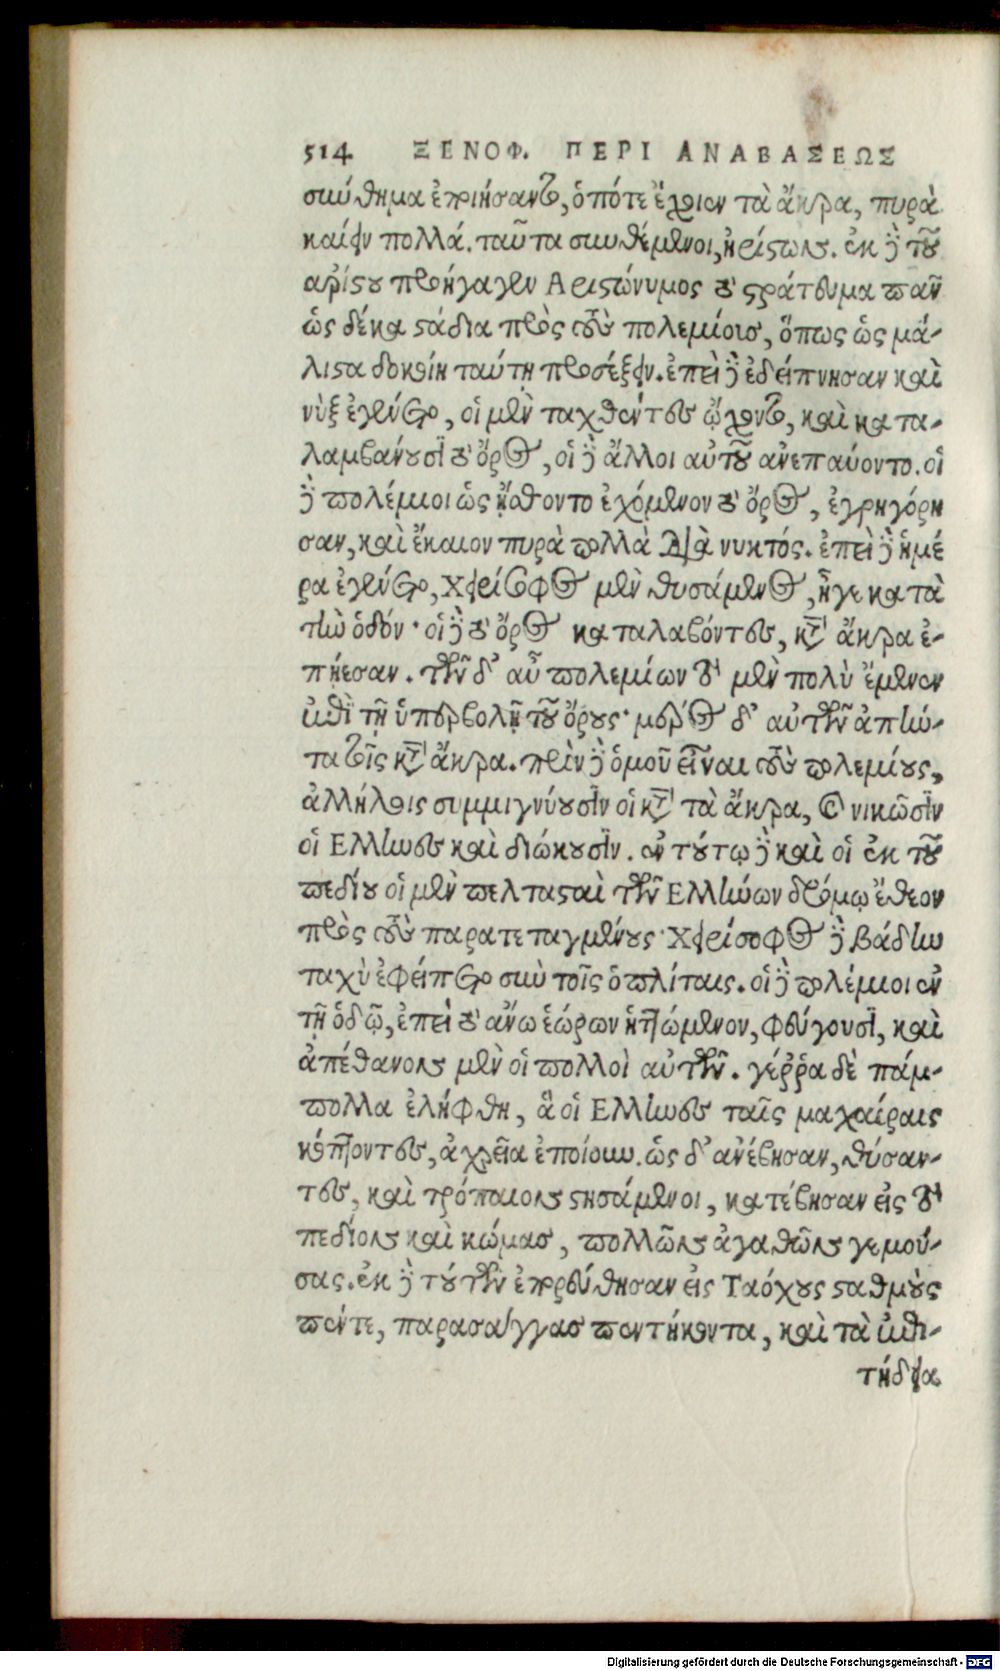 514 ΞΕΝΟΦ. ΠΕΡΙ ΑΝΑΒΑΣΕΩΣ
σύνθημα ἐποιήσαντο, ὁπότε ἔχοιεν τὰ ἄκρα, πυρὰ
καίειν πολλά. ταῦτα συνθέμενοι, ἠρίστων. ἐκ δὲ τοῦ
αρίστου προήγαγεν Αριστώνυμος τὸ στράτευμα παν
ὡς δέκα στάδια πρὸς τοὺς πολεμίους, ὅπως ὡς μά-
λιστα δοκοίη ταύτῃ προσέξειν. ἐπεὶ δὲ ἐδείπνησαν καὶ
νὺξ ἐγένετο, οἱ μὲν ταχθέντες ᾤχοντο, καὶ κατα-
λαμβάνουσι τὸ ὄρος, οἱ δὲ ἄλλοι αὐτοῦ ανεπαύοντο. οἱ
δὲ πολέμιοι ὡς ᾔσθοντο ἐχόμενον τὸ ὄρος, ἐγρηγόρη
σαν, καὶ ἔκαιον πυρὰ πολλὰ διὰ νυκτός. ἐπεὶ δὲ ἡμέ
ρα ἐγένετο, Χειρίσοφος μὲν θυσάμενος, ἦγε κατὰ
τὴν ὁδόν· οἱ δὲ τὸ ὄρος καταλαβόντες, κατὰ ἄκρα ἐ-
πῄεσαν. τῶν δ' αὖ πολεμίων τὸ μὲν πολὺ ἔμενεν
ἐπὶ τῇ ὑπερβολῇ τοῦ ὄρους· μέρος δ' αὐτῶν ἀπήν-
τα τοῖς κατὰ ἄκρα. πρὶν δὲ ὁμοῦ εἶναι τοὺς πολεμίους,
ἀλλήλοις συμμιγνύουσιν οἱ κατὰ τὰ ἄκρα, καὶ νικῶσιν
οἱ Ελληνες καὶ διώκουσιν. ἐν τούτῳ δὲ καὶ οἱ ἐκ τοῦ
πεδίου οἱ μὲν πελτασταὶ τῶν Ελλήνων δρόμῳ ἔθεον
πρὸς τοὺς παρατεταγμένους· Χειρίσοφος δὲ βάδην
ταχὺ ἐφείπετο σὺν τοῖς ὁπλίταις. οἱ δὲ πολέμιοι ἐν
τῇ ὁδῷ, ἐπεὶ τὸ ἄνω ἑώρων ἡττώμενον, φεύγουσι, καὶ
ἀπέθανον μὲν οἱ πολλοὶ αὐτῶν. γέῤῥα δὲ πάμ-
πολλα ἐλήφθη, ἃ οἱ Ελληνες ταῖς μαχαίραις
κόπτοντες, ἀχρεῖα ἐποίουν. ὡς δ' ανέβησαν, θύσαν-
τες, καὶ τρόπαιον στησάμενοι, κατέβησαν εἰς τὸ
πεδίον καὶ κώμας, πολλῶν ἀγαθῶν γεμού-
σας. ἐκ δὲ τούτων ἐπορεύθησαν εἰς Ταόχους σταθμοὺς
πέντε, παρασάγγας πεντήκοντα, καὶ τὰ ἐπι-
τήδεια
Digitalisierung gefördert durch die Deutsche Forschungsgemeinschaft - DFG